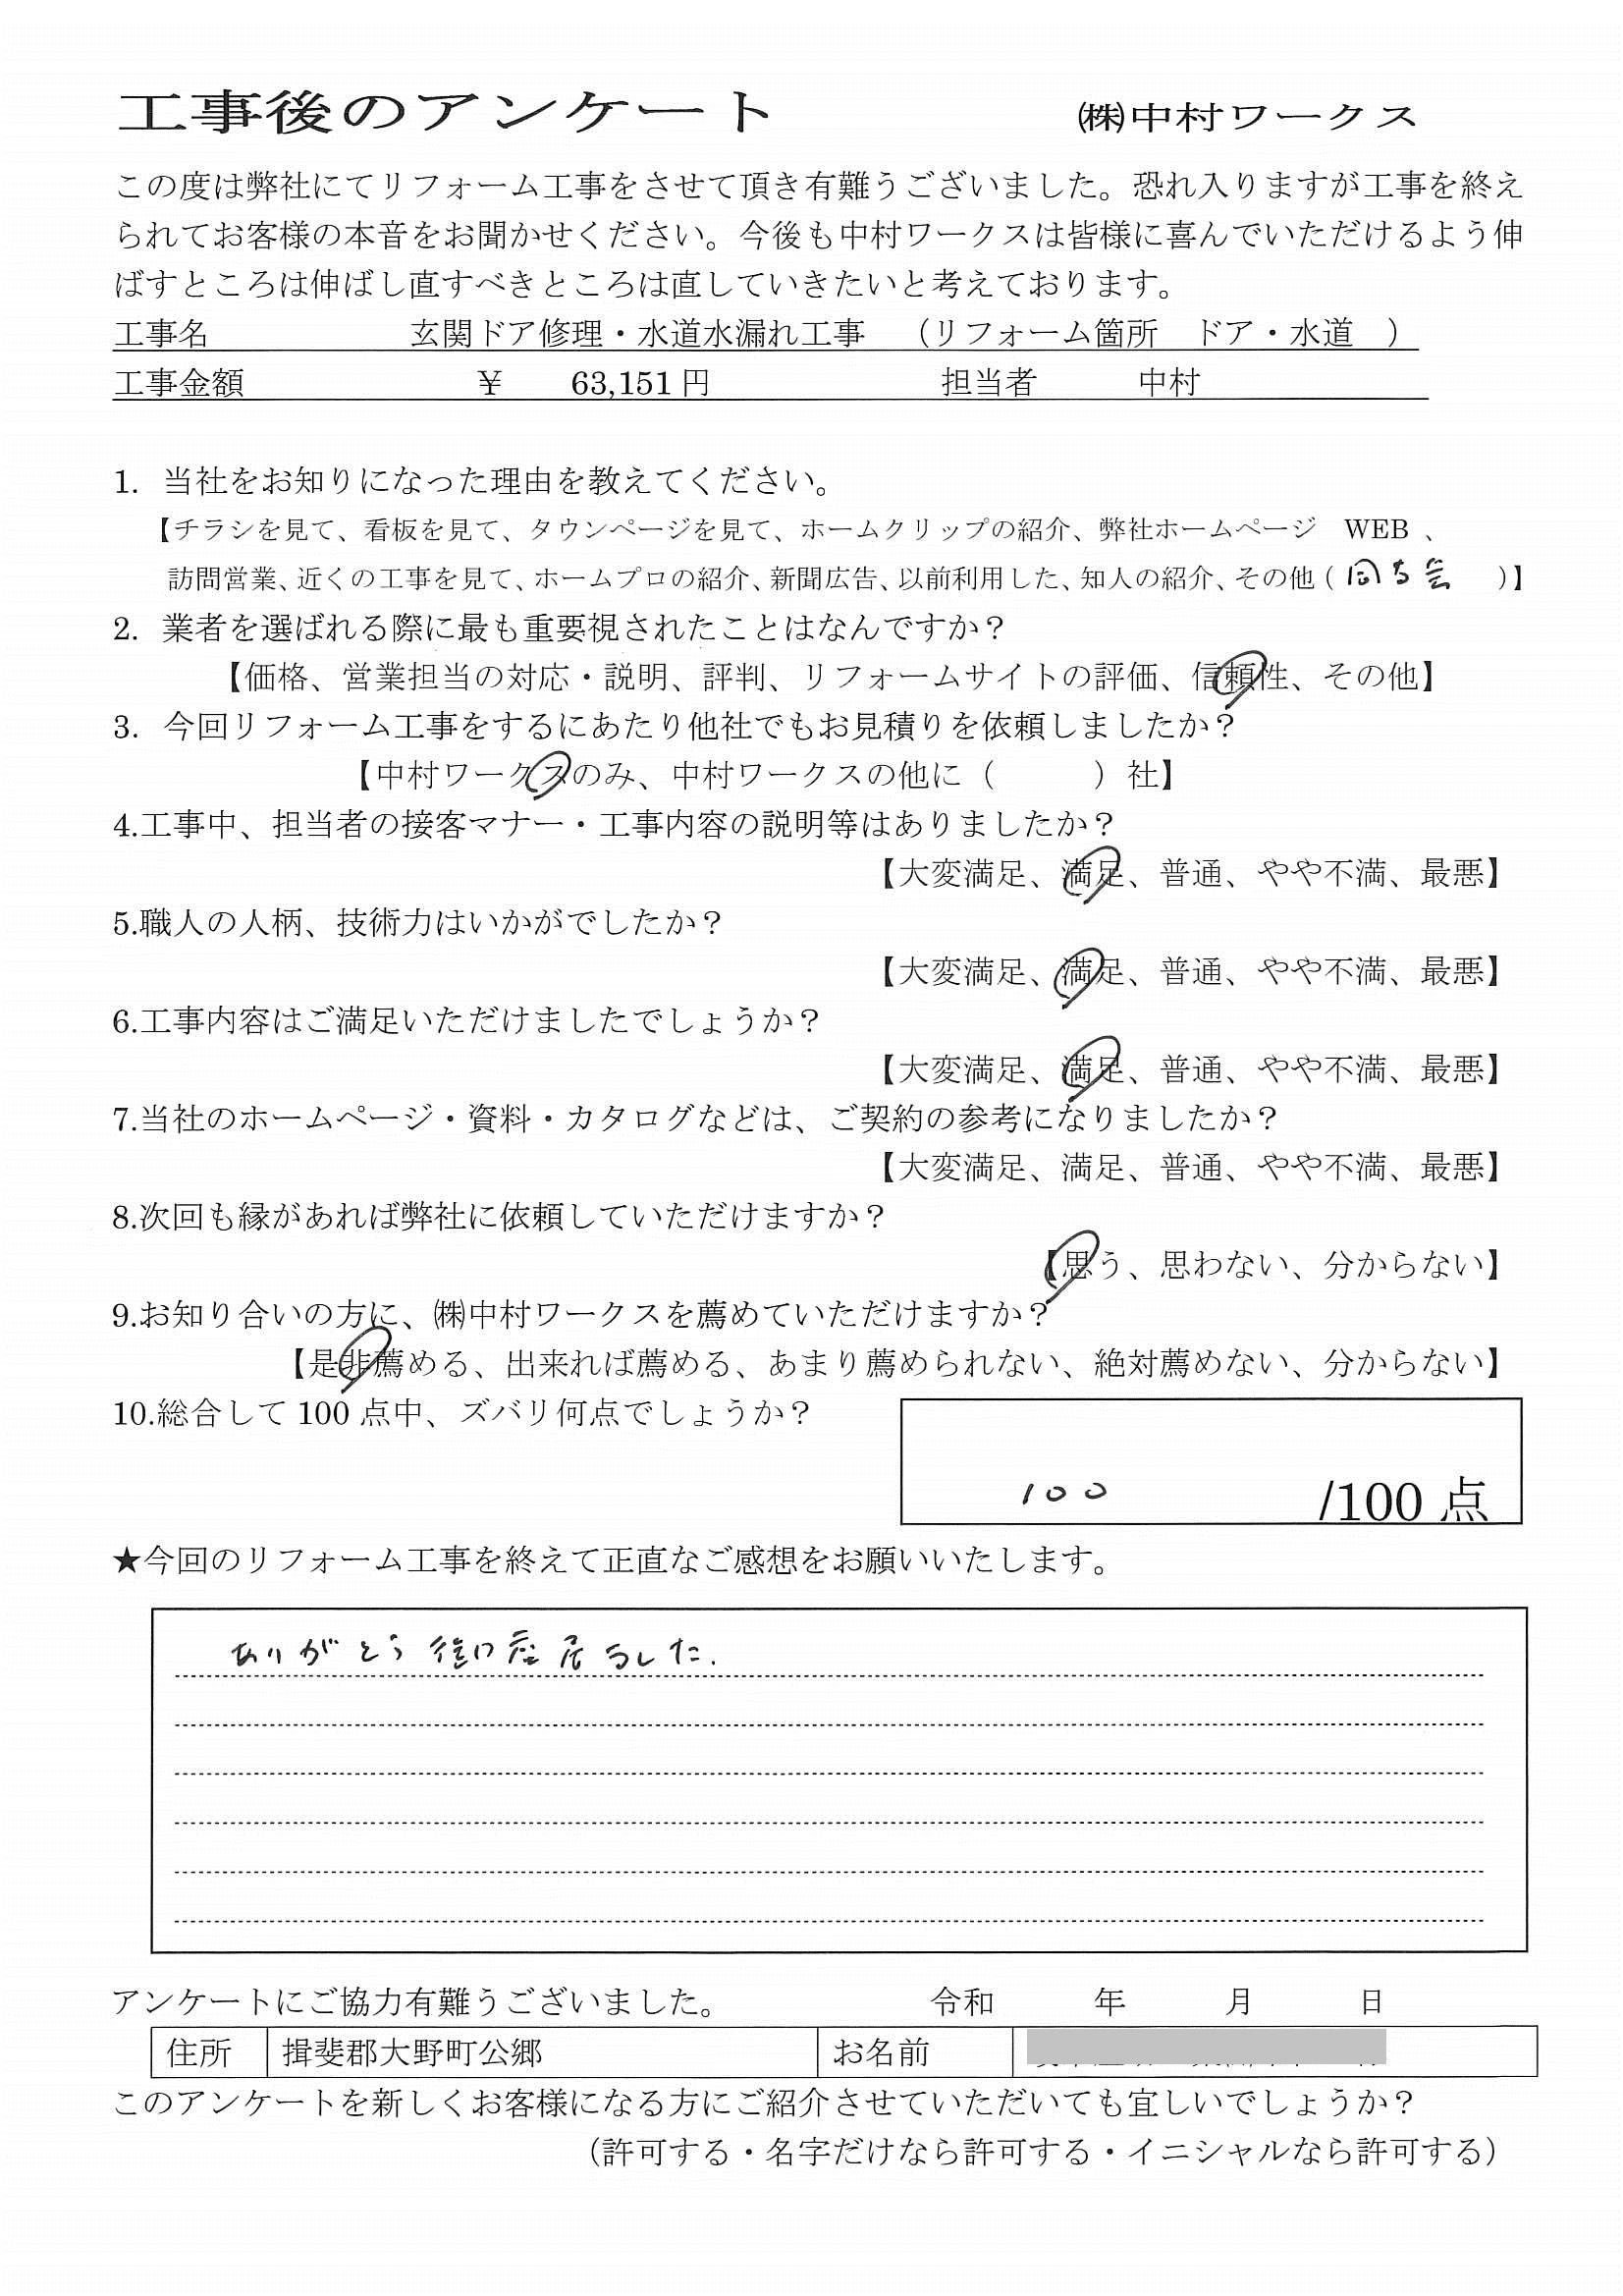 工事後のアンケート ㈱中村ワークス
この度は弊社にてリフォーム工事をさせて頂き有難うございました。恐れ入りますが工事を終え
られてお客様の本音をお聞かせください。今後も中村ワークスは皆様に喜んでいただけるよう伸
ばすところは伸ばし直すべきところは直していきたいと考えております。
工事名 玄関ドア修理・水道水漏れ工事 （リフォーム箇所 ドア・水道 ）
工事金額 ￥ 63,151 円 担当者 中村
1. 当社をお知りになった理由を教えてください。
【チラシを見て、看板を見て、タウンページを見て、ホームクリップの紹介、弊社ホームページ WEB 、
訪問営業、近くの工事を見て、ホームプロの紹介、新聞広告、以前利用した、知人の紹介、その他（ ）】
2. 業者を選ばれる際に最も重要視されたことはなんですか？
【価格、営業担当の対応・説明、評判、リフォームサイトの評価、信頼性、その他】
3. 今回リフォーム工事をするにあたり他社でもお見積りを依頼しましたか？
【中村ワークスのみ、中村ワークスの他に（ ）社】
4.工事中、担当者の接客マナー・工事内容の説明等はありましたか？
【大変満足、満足、普通、やや不満、最悪】
5.職人の人柄、技術力はいかがでしたか？
【大変満足、満足、普通、やや不満、最悪】
6.工事内容はご満足いただけましたでしょうか？
【大変満足、満足、普通、やや不満、最悪】
7.当社のホームページ・資料・カタログなどは、ご契約の参考になりましたか？
【大変満足、満足、普通、やや不満、最悪】
8.次回も縁があれば弊社に依頼していただけますか？
【思う、思わない、分からない】
9.お知り合いの方に、㈱中村ワークスを薦めていただけますか？
【是非薦める、出来れば薦める、あまり薦められない、絶対薦めない、分からない】
10.総合して 100 点中、ズバリ何点でしょうか？
100 /100 点
★今回のリフォーム工事を終えて正直なご感想をお願いいたします。
ありがとう御座居ました.
アンケートにご協力有難うございました。 令和 年 月 日
住所 揖斐郡大野町公郷 お名前
このアンケートを新しくお客様になる方にご紹介させていただいても宜しいでしょうか？
（許可する・名字だけなら許可する・イニシャルなら許可する）